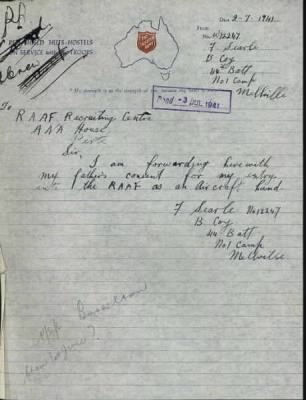 RED SHIELD HUTS-HOSTELS
IN SERVICE with the TROOPS
Date 2-7-1941
From
No W12247
F Searle
B Coy
44 Batt
No 1 Camp
Melville
3 JUL 1941
To
RAAF Recruiting Centre
ANA House
Perth
Sir,
I am forwarding herewith
my father's consent for my entry
into the RAAF as an Aircraft hand
F Searle No 12247
B Coy
44 Batt
No 1 Camp
Melville